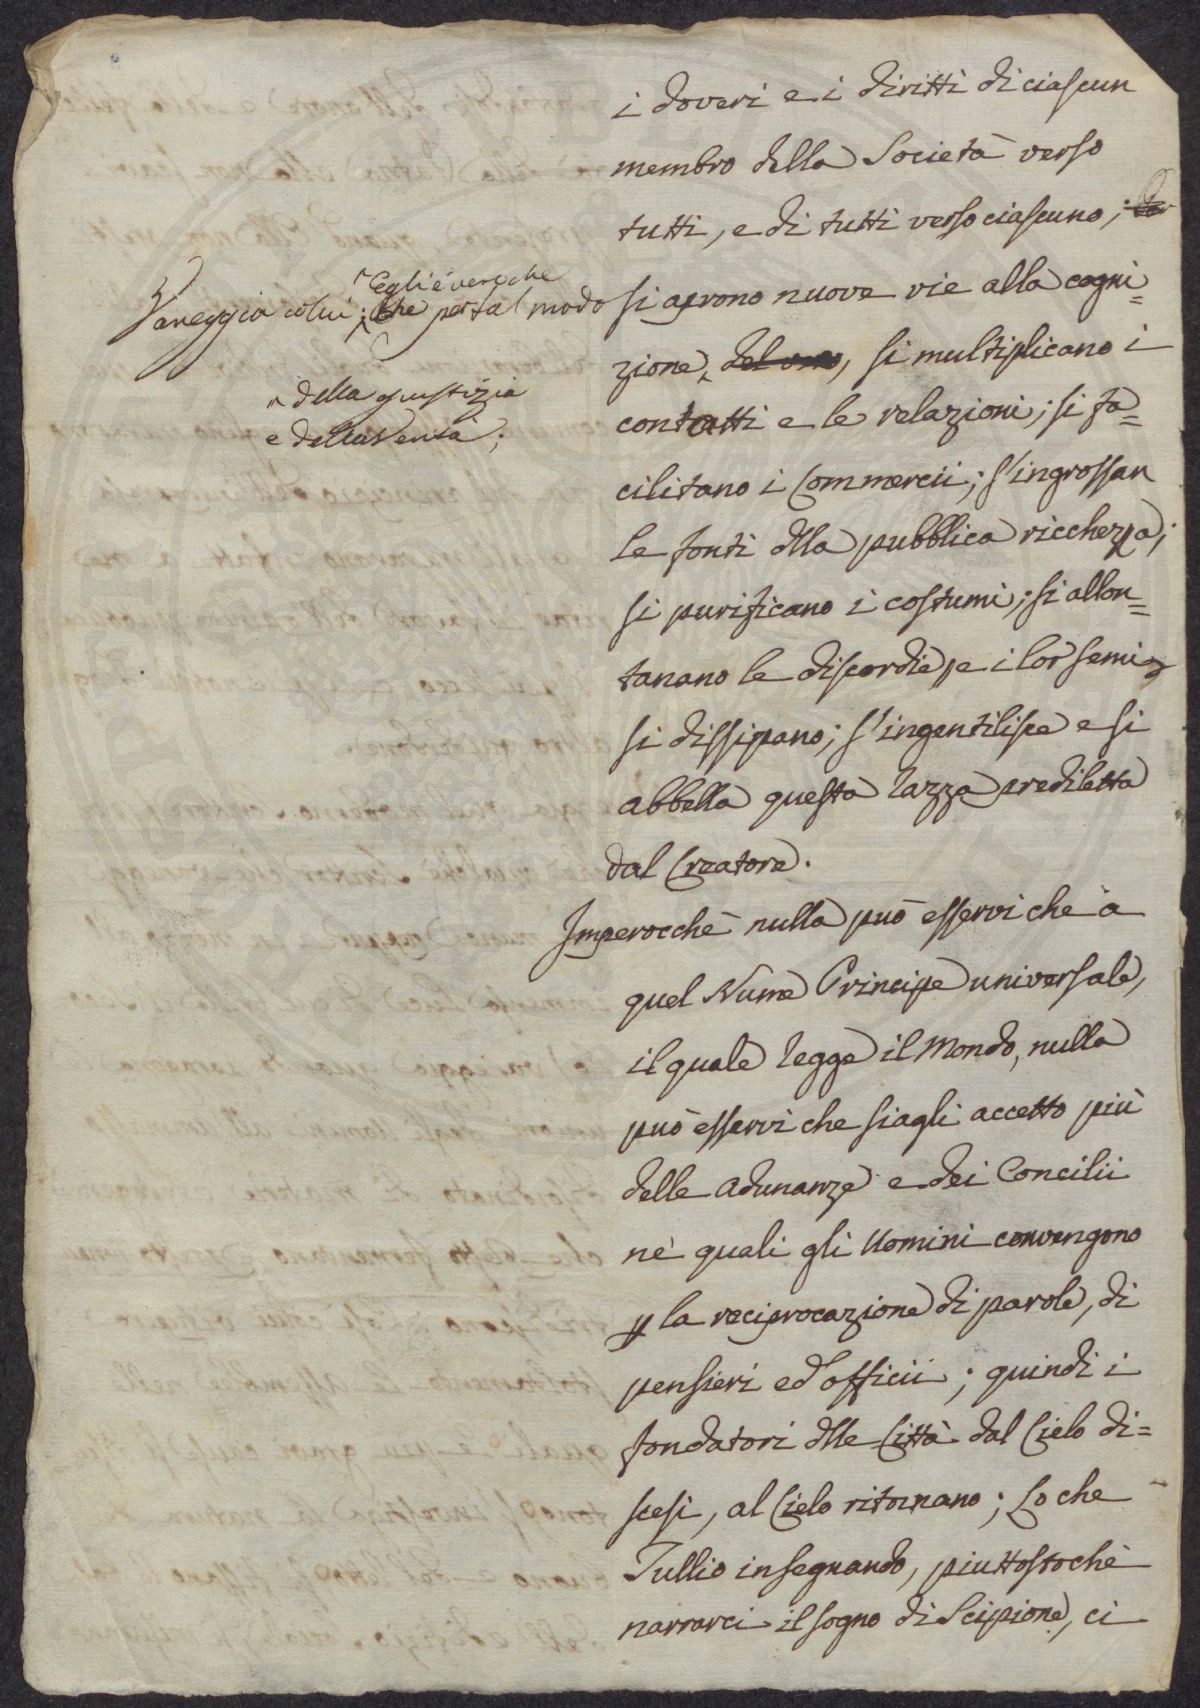 i doveri e i diritti di ciascun
membro della Società verso
tutti, e di tutti verso ciascuno;
^ Egli è vero che
Vaneggia colui; ^ che per tal modo si aprono nuove vie alla cogni=
zione ^ del vero, si multiplicano i
^ della giustizia
e della Verità;
contatti e le relazioni; si fa=
cilitano i Commercii; s'ingrossan
le fonti dlla pubblica ricchezza;
si purificano i costumi; si allon=
tanano le discordie, e i lor semi
si dissipano; s'ingentilisce e si
abbella questa razza prediletta
dal Creatore.
Imperocchè nulla può esservi che a
quel Nume Principe universale,
il quale regge il Mondo, nulla
può esservi che siagli accetto più
delle adunanze e dei Concilii
nè quali gli Uomini convengono
p la reciprocazione di parole, di
pensieri ed officii; quindi i
fondatori dlle Città dal Cielo di=
scesi, al Cielo ritornano; Lo che
Tullio insegnando, piuttostochè
narrarci il sogno di Scipione, ci